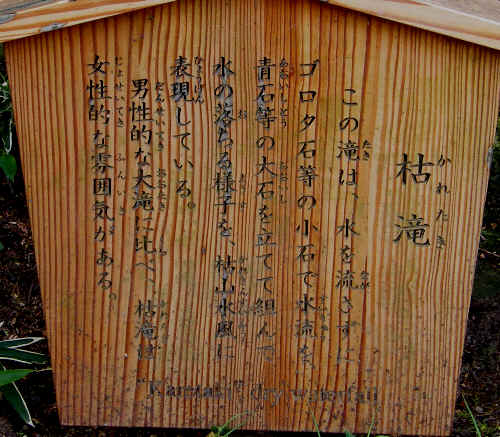 枯滝
かれたき
この滝は、水を流さずに
ゴロタ石等の小石で水流を、
青石等の大石を立てて組んで
水の落ちる様子を、枯山水風に
表現している。
男性的な大滝に比べ、枯滝は
女性的な雰囲気がある。
"Karetaki" dry waterfall